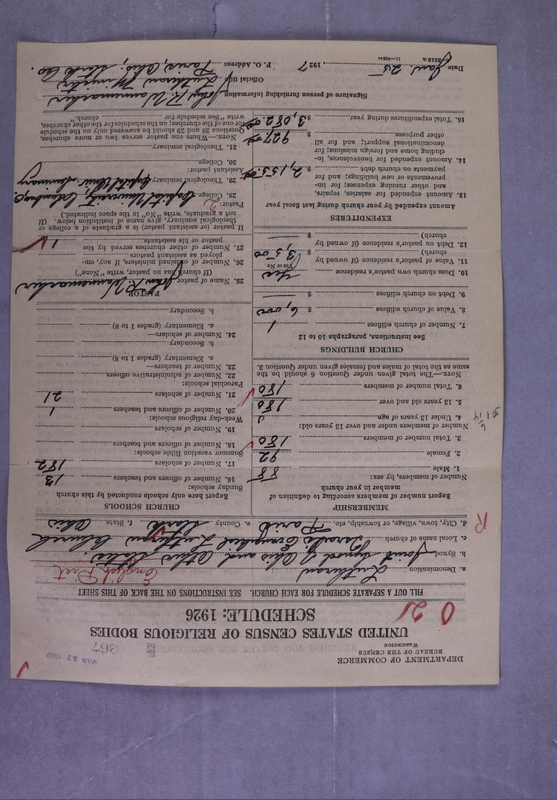 DEPARTMENT OF COMMERCE
BUREAU OF THE CENSUS
WASHINGTON
367
JAN 27
UNITED STATES CENSUS OF RELIGIOUS BODIES
SCHEDULE: 1926
FILL OUT A SEPARATE SCHEDULE FOR EACH CHURCH. SEE INSTRUCTIONS ON THE BACK OF THIS SHEET
English Dist
a. Denomination Lutheran
b. Synod Joint Synod of Ohio and Other States
c. Local name of church Evangelical Lutheran Church
d. City, town, village, or township, etc. Paris e. County Stark f. State Ohio
MEMBERSHIP
Report number of members according to definition of
member in your church
Number of members, by sex:
1. Male 88
2. Female 92
3. Total number of members 180
Number of members under and over 13 years old:
4. Under 13 years of age
5. 13 years old and over 180
6. Total number of members 180
NOTE.—The total given under Question 6 should be the
same as the total of males and females given under Question 3.
CHURCH BUILDINGS
See instructions, paragraphs 10 to 12
7. Number of church edifices 1
8. Value of church edifices $ 6,000
9. Debt on church edifices $
10. Does church own pastor's residence Yes
(Yes or No)
11. Value of pastor's residence (if owned by
church) $ 3,500
12. Debt on pastor's residence (if owned by
church) $
EXPENDITURES
Amount expended by your church during last fiscal year
13. Amount expended for salaries, repairs,
and other running expenses; for im-
provements or new buildings; and for
payments on church debt $ 2,155.00
14. Amount expended for benevolences, in-
cluding home and foreign missions; for
denominational support; and for all
other purposes $ 927.00
15. Total expenditures during year $ 3,082.00
CHURCH SCHOOLS
Report here only schools conducted by this church
Sunday schools:
16. Number of officers and teachers 13
17. Number of scholars 182
Summer vacation Bible schools:
18. Number of officers and teachers
19. Number of scholars
Week-day religious schools:
20. Number of officers and teachers 1
21. Number of scholars 21
Parochial schools:
22. Number of administrative officers
23. Number of teachers—
a. Elementary (grades 1 to 8)
b. Secondary
24. Number of scholars—
a. Elementary (grades 1 to 8)
b. Secondary
PASTOR
25. Name of pastor John R. Wannemacher
(If church has no pastor, write "None")
26. Number of ordained ministers, if any, em-
ployed as assistant pastors
27. Number of other churches served by the
pastor or his assistants 1
If pastor or assistant pastor is a graduate of college or
theological seminary, give name of institution below. (If
not a graduate, write "No" in the space indicated.)
Pastor:
28. College Capital University, Columbus
29. Theological seminary Capital Univ. Seminary
Assistant pastor:
30. College
31. Theological seminary
NOTE.—Where one pastor serves two or more churches,
Questions 28 and 29 should be answered only on the schedule
for one of the churches; on the schedules for the other churches,
write "See schedule for church."
Signature of person furnishing information John R. Wannemacher
Official title Lutheran Minister
P. O. Address Paris, Ohio, Stark Co.
Date Jan. 25 1927